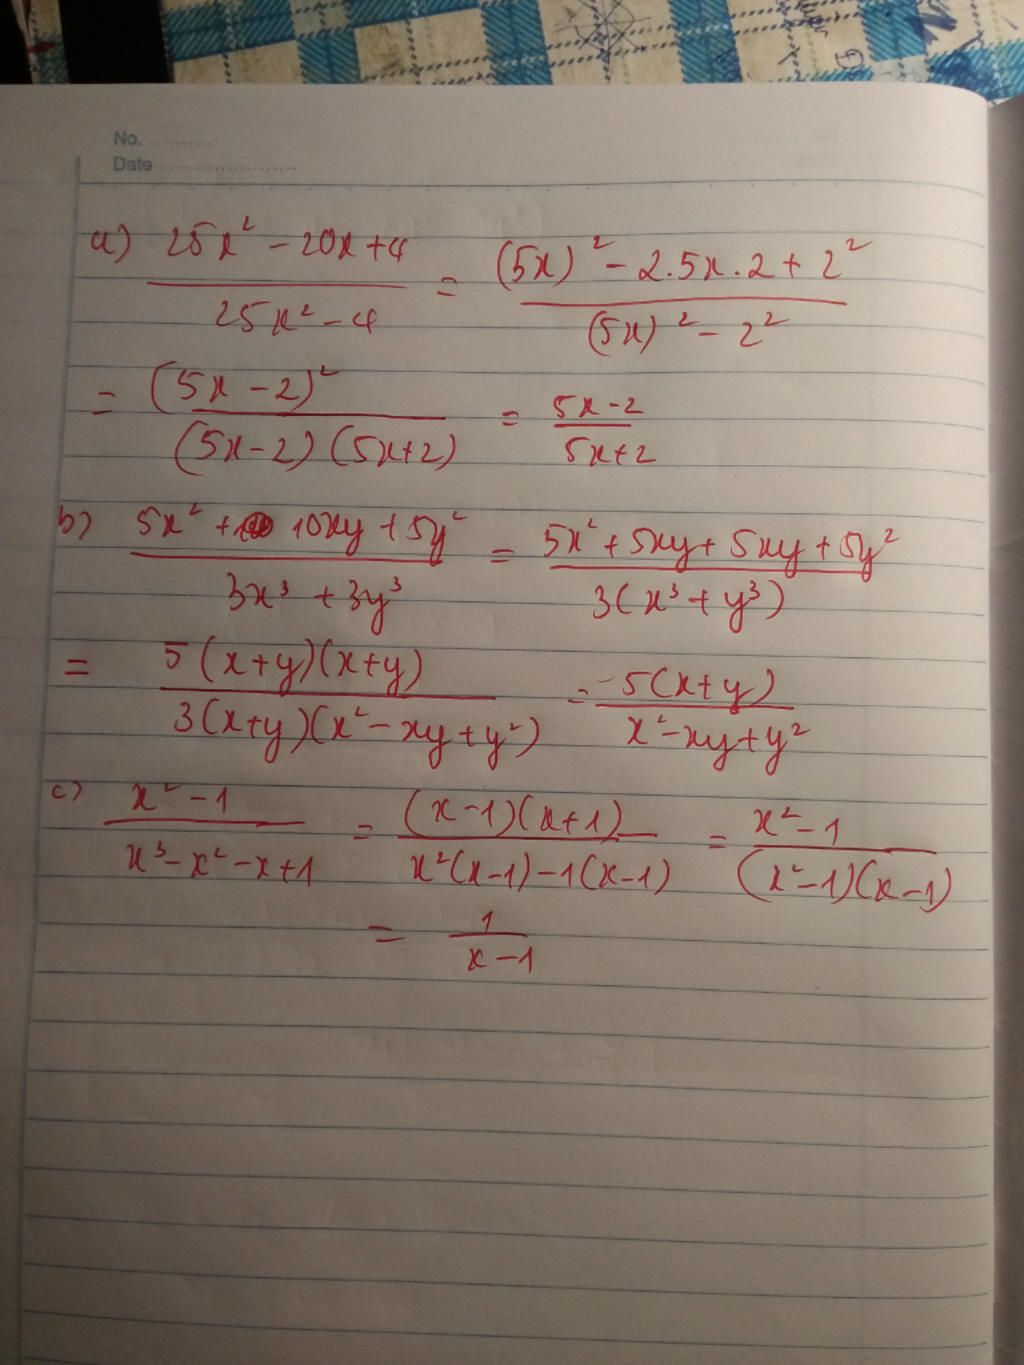 No. ............
Date ......................
a) 25x² - 20x + 4 / 25x² - 4 = (5x)² - 2.5x.2 + 2² / (5x)² - 2²
= (5x - 2)² / (5x-2)(5x+2) = 5x-2 / 5x+2
b) 5x² + 10xy + 5y² / 3x³ + 3y³ = 5x² + 5xy + 5xy + 5y² / 3(x³ + y³)
= 5(x+y)(x+y) / 3(x+y)(x² - xy + y²) = 5(x+y) / x² - xy + y²
c) x² - 1 / x³ - x² - x + 1 = (x-1)(x+1) / x²(x-1) - 1(x-1) = x² - 1 / (x²-1)(x-1)
= 1 / x - 1